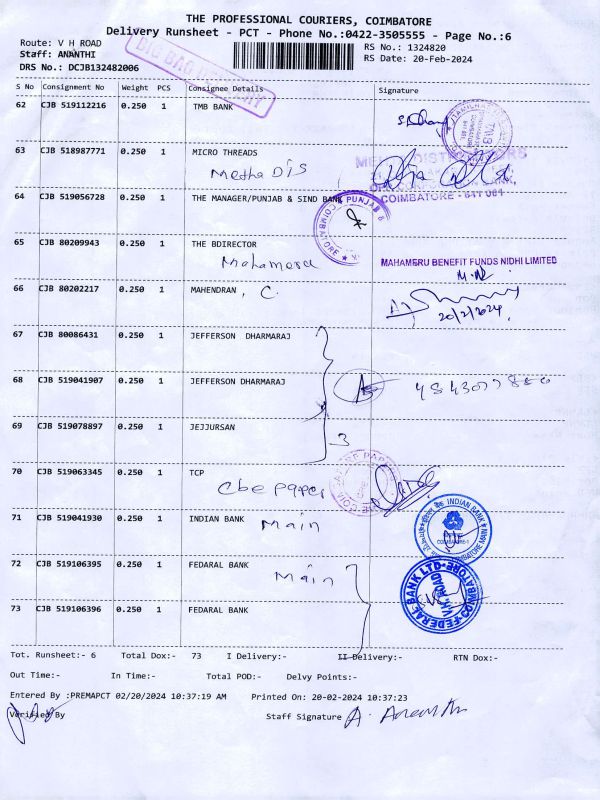 THE PROFESSIONAL COURIERS, COIMBATORE
Delivery Runsheet - PCT - Phone No.:0422-3505555 - Page No.:6
Route: V H ROAD
RS No.: 1324820
Staff: ANANTHI
RS Date: 20-Feb-2024
DRS No.: DCJB132482006
S No Consignment No Weight PCS Consignee Details Signature
62 CJB 519112216 0.250 1 TMB BANK
63 CJB 518987771 0.250 1 MICRO THREADS
Metha DIS
64 CJB 519056728 0.250 1 THE MANAGER/PUNJAB & SIND BANK
COIMBATORE - 641 001
65 CJB 80209943 0.250 1 THE BDIRECTOR
Mahameru
MAHAMERU BENEFIT FUNDS NIDHI LIMITED
66 CJB 80202217 0.250 1 MAHENDRAN, C.
20/2/2024.
67 CJB 80086431 0.250 1 JEFFERSON DHARMARAJ
68 CJB 519041907 0.250 1 JEFFERSON DHARMARAJ
69 CJB 519078897 0.250 1 JEJJURSAN
3
70 CJB 519063345 0.250 1 TCP
Cbe Paper
71 CJB 519041930 0.250 1 INDIAN BANK
Main
INDIAN BANK
72 CJB 519106395 0.250 1 FEDARAL BANK
Main
FEDERAL BANK LTD
V.H.ROAD
COIMBATORE
73 CJB 519106396 0.250 1 FEDARAL BANK
Tot. Runsheet:- 6 Total Dox:- 73 I Delivery:- II Delivery:- RTN Dox:-
Out Time:- In Time:- Total POD:- Delvy Points:-
Entered By :PREMAPCT 02/20/2024 10:37:19 AM Printed On: 20-02-2024 10:37:23
Verified By Staff Signature A. Ananthi